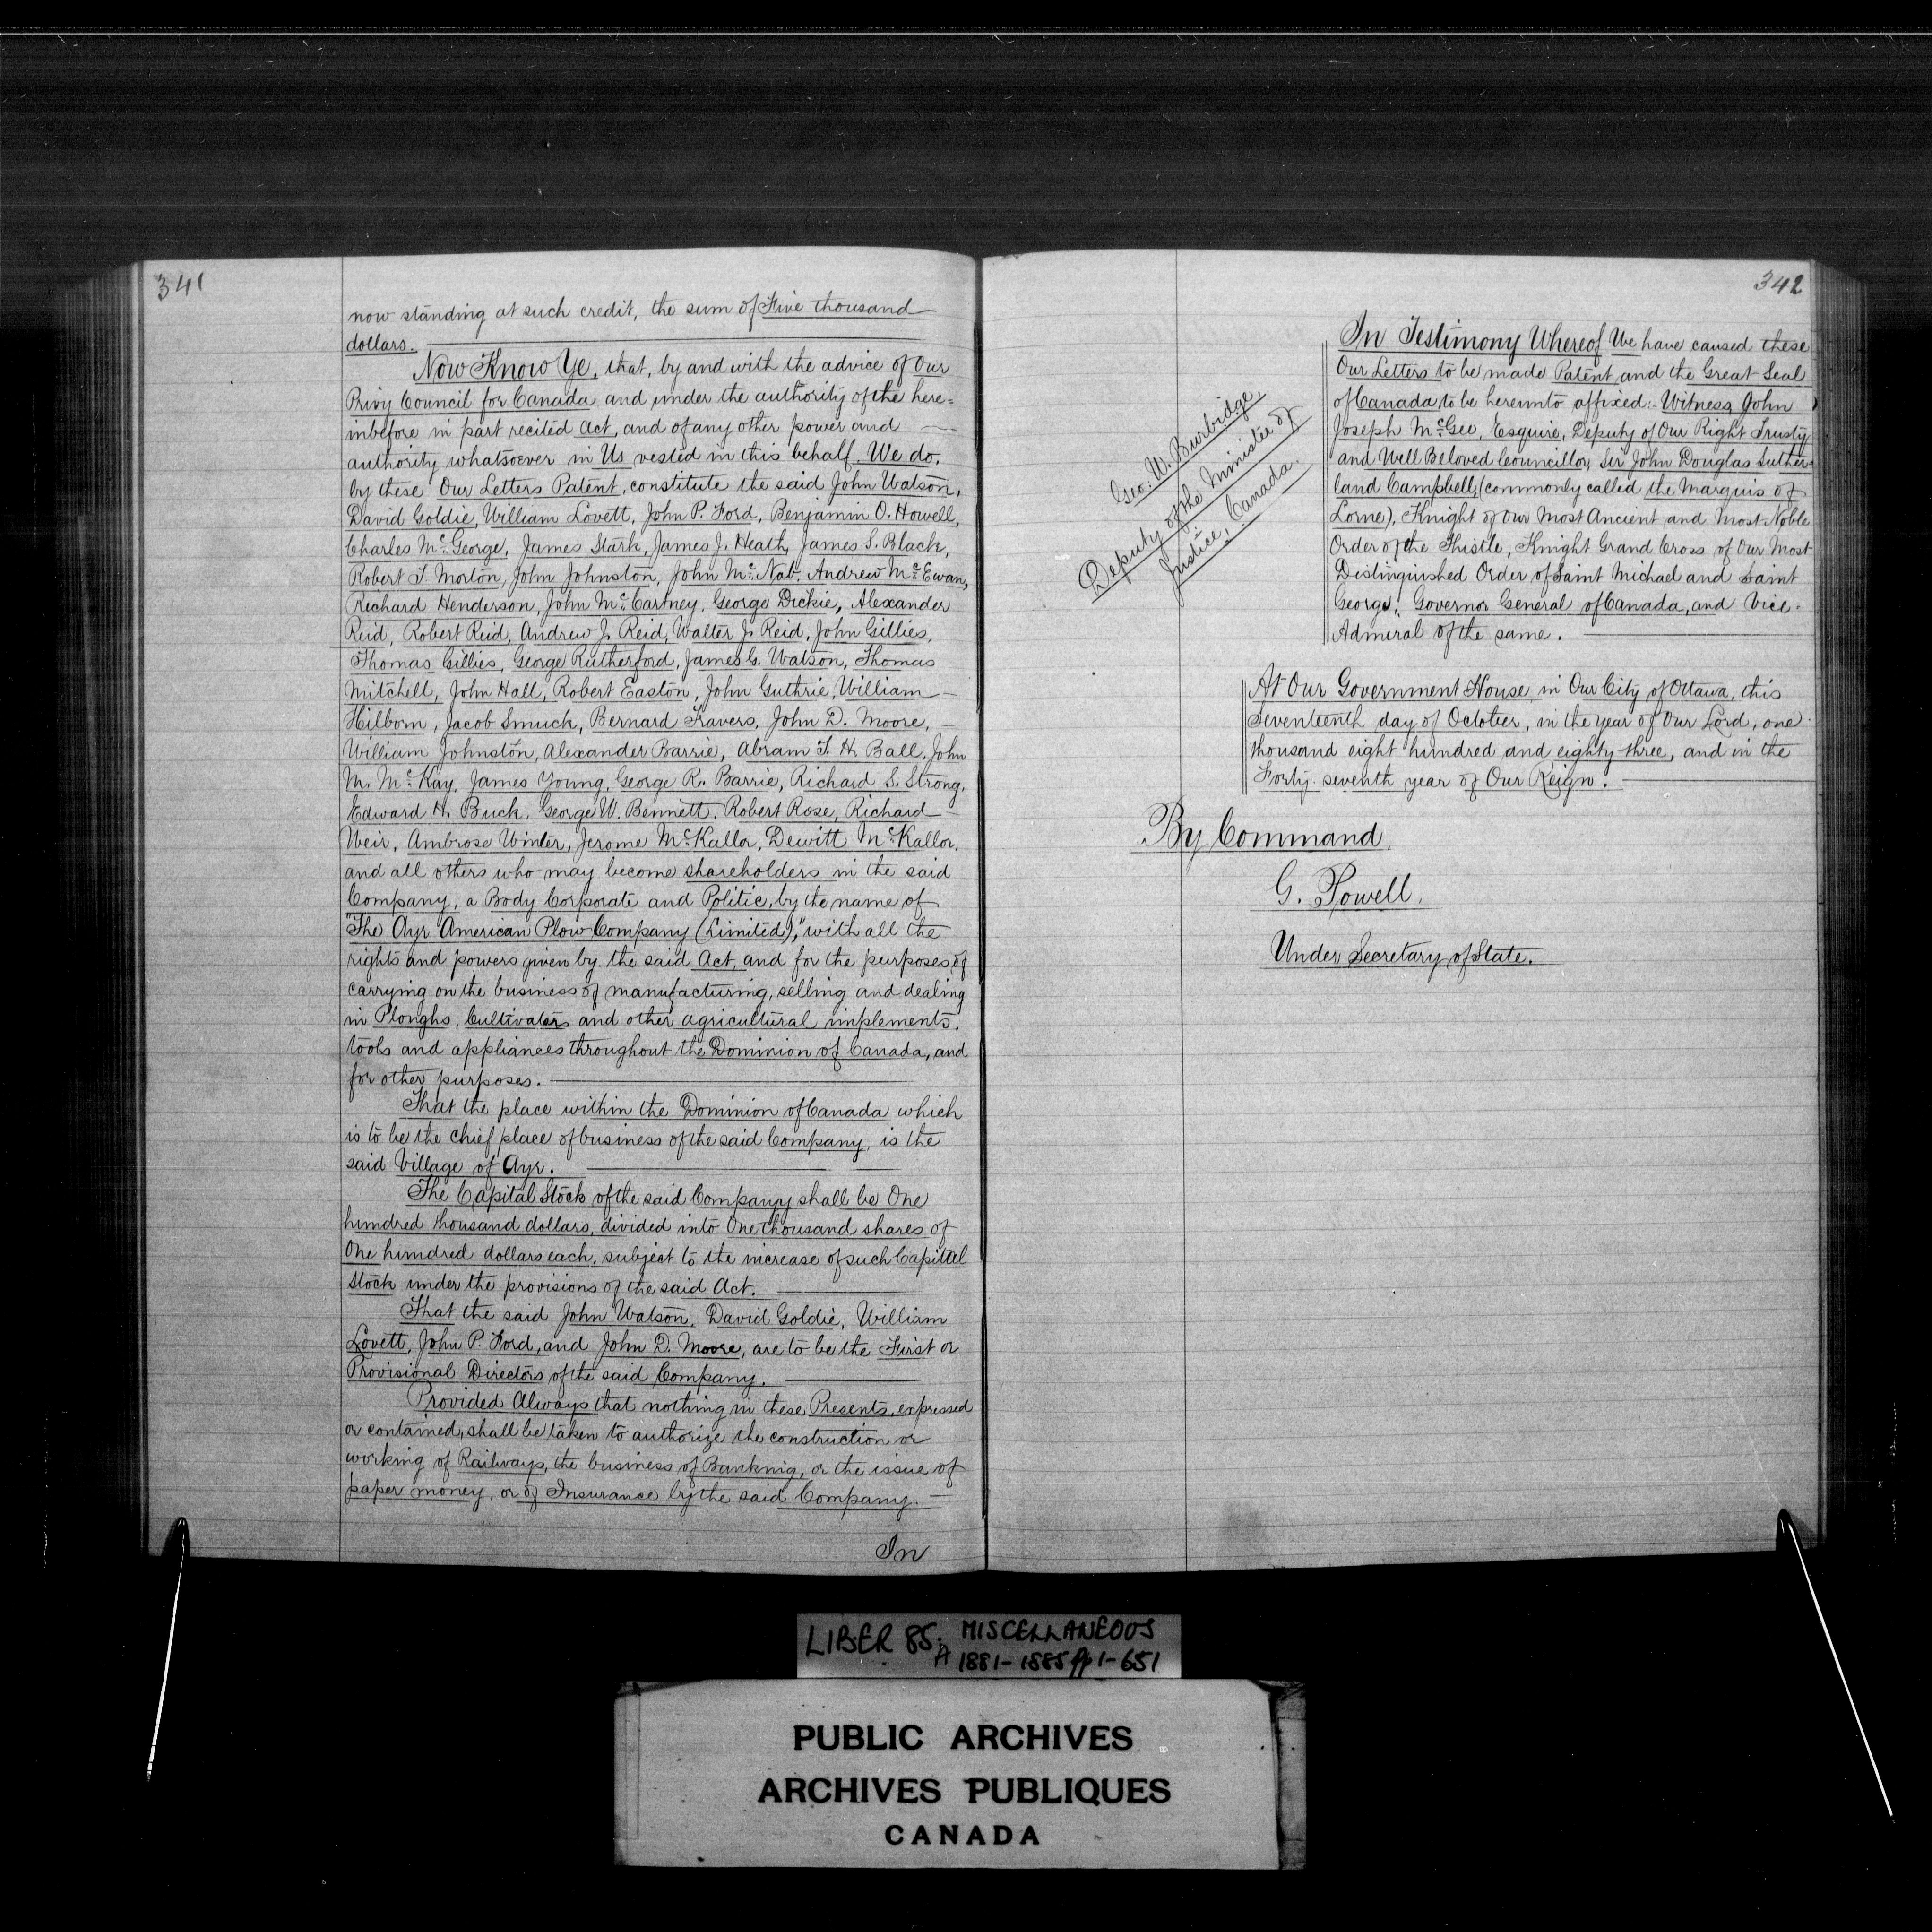 341
now standing at such credit, the sum of Five thousand
dollars.
Now Know Ye, that, by and with the advice of Our
Privy Council for Canada, and under the authority of the here=
inbefore in part recited Act, and of any other power and
authority whatsoever in Us vested in this behalf. We do,
by these Our Letters Patent, constitute the said John Watson,
David Goldie, William Lovett, John P. Ford, Benjamin O. Howell,
Charles Mc.George, James Stark, James J. Heath, James S. Black,
Robert T. Morton, John Johnston, John Mc.Nab, Andrew Mc.Ewan,
Richard Henderson, John Mc.Cartney, George Dickie, Alexander
Reid, Robert Reid, Andrew J. Reid, Walter J. Reid, John Gillies,
Thomas Gillies, George Rutherford, James G. Watson, Thomas
Mitchell, John Hall, Robert Easton, John Guthrie, William
Hilborn, Jacob Smuck, Bernard Travers, John D. Moore,
William Johnston, Alexander Barrie, Abram T. H. Ball, John
M. Mc.Kay, James Young, George R. Barrie, Richard S. Strong,
Edward H. Buck, George W. Bennett, Robert Rose, Richard
Weir, Ambrose Winter, Jerome Mc.Kallor, Dewitt Mc.Kallor,
and all others who may become shareholders in the said
Company, a Body Corporate and Politic, by the name of
"The Ayr American Plow Company (Limited)," with all the
rights and powers given by the said Act, and for the purposes of
carrying on the business of manufacturing, selling and dealing
in Ploughs, Cultivators and other agricultural implements,
tools and appliances throughout the Dominion of Canada, and
for other purposes.
That the place within the Dominion of Canada which
is to be the chief place of business of the said Company, is the
said Village of Ayr.
The Capital Stock of the said Company shall be One
hundred thousand dollars, divided into One thousand shares of
One hundred dollars each, subject to the increase of such Capital
Stock under the provisions of the said Act.
That the said John Watson, David Goldie, William
Lovett, John P. Ford, and John D. Moore, are to be the First or
Provisional Directors of the said Company.
Provided Always that nothing in these Presents, expressed
or contained, shall be taken to authorize the construction or
working of Railways, the business of Banking, or the issue of
paper money, or of Insurance by the said Company.
In
342
In Testimony Whereof We have caused these
Our Letters to be made Patent and the Great Seal
of Canada, to be hereunto affixed:- Witness, John
Joseph Mc.Gee, Esquire, Deputy of Our Right Trusty
and Well Beloved Councillor, Sir John Douglas Suther=
land Campbell, (commonly called the Marquis of
Lorne), Knight of Our Most Ancient and Most Noble
Order of the Thistle, Knight Grand Cross of Our Most
Distinguished Order of Saint Michael and Saint
George; Governor General of Canada, and Vice-
Admiral of the same.
Geo: W. Burbidge
Deputy of the Minister of
Justice, Canada.
At Our Government House, in Our City of Ottawa, this
Seventeenth day of October, in the year of Our Lord, one
thousand eight hundred and eighty three, and in the
Forty-seventh year of Our Reign.
By Command,
G. Powell,
Under Secretary of State.
LIBER 85. MISCELLANEOUS
A 1881-1885 pp 1-651
PUBLIC ARCHIVES
ARCHIVES PUBLIQUES
CANADA